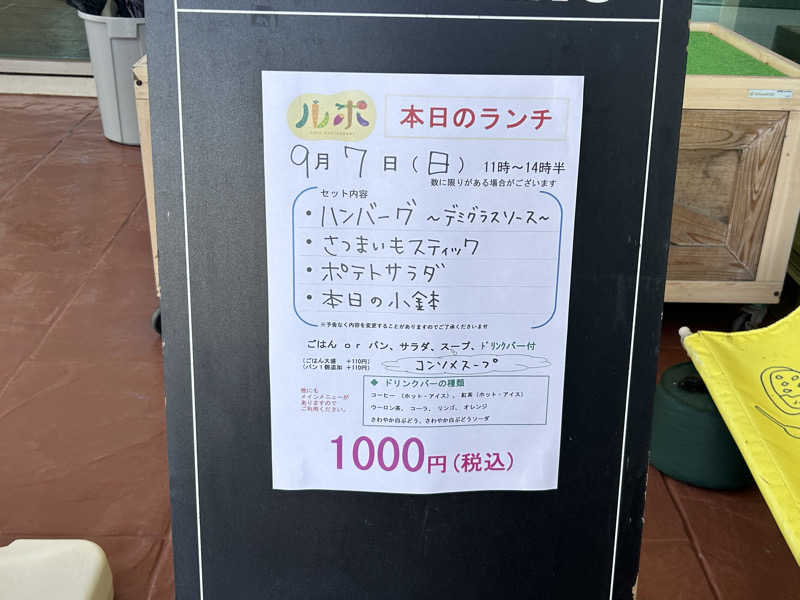 ルポ
本日のランチ
9月7日(日) 11時～14時半
数に限りがある場合がございます
セット内容
・ハンバーグ ～デミグラスソース～
・さつまいもスティック
・ポテトサラダ
・本日の小鉢
※予告なく内容を変更することがありますのでご了承くださいませ
ごはん or パン、サラダ、スープ、ドリンクバー付
(ごはん大盛 +110円)
(パン1個追加 +110円)
コンソメスープ
他にも
メインメニューが
ありますので
ご利用ください。
◆ ドリンクバーの種類
コーヒー (ホット・アイス)、紅茶(ホット・アイス)
ウーロン茶、コーラ、リンゴ、オレンジ
さわやか白ぶどう、さわやか白ぶどうソーダ
1000円(税込)